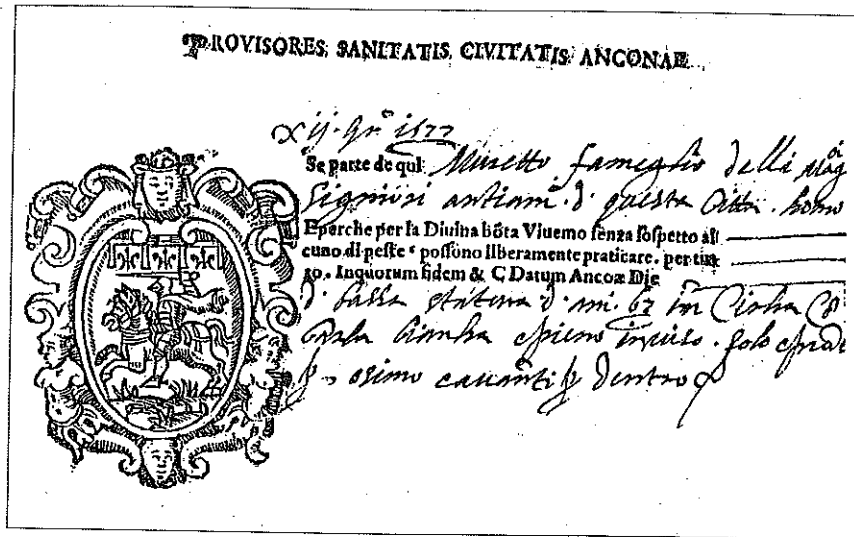 PROVISORES, SANITATIS, CIVITATIS, ANCONAE
xij. 1577
Se parte de qui Musetto fameglio delli mag
Signiori antiani d questa Citta. homo
Eperche per la Diuina bōta Viuemo senza sospetto al
cuno di peste possono liberamente praticare. per tut
to. Inquorum fidem & C Datum Anconæ Die
d. bassa statura d'ani. 67 in Circha
barba biancha e pieno in viso. solo
osimo dentro